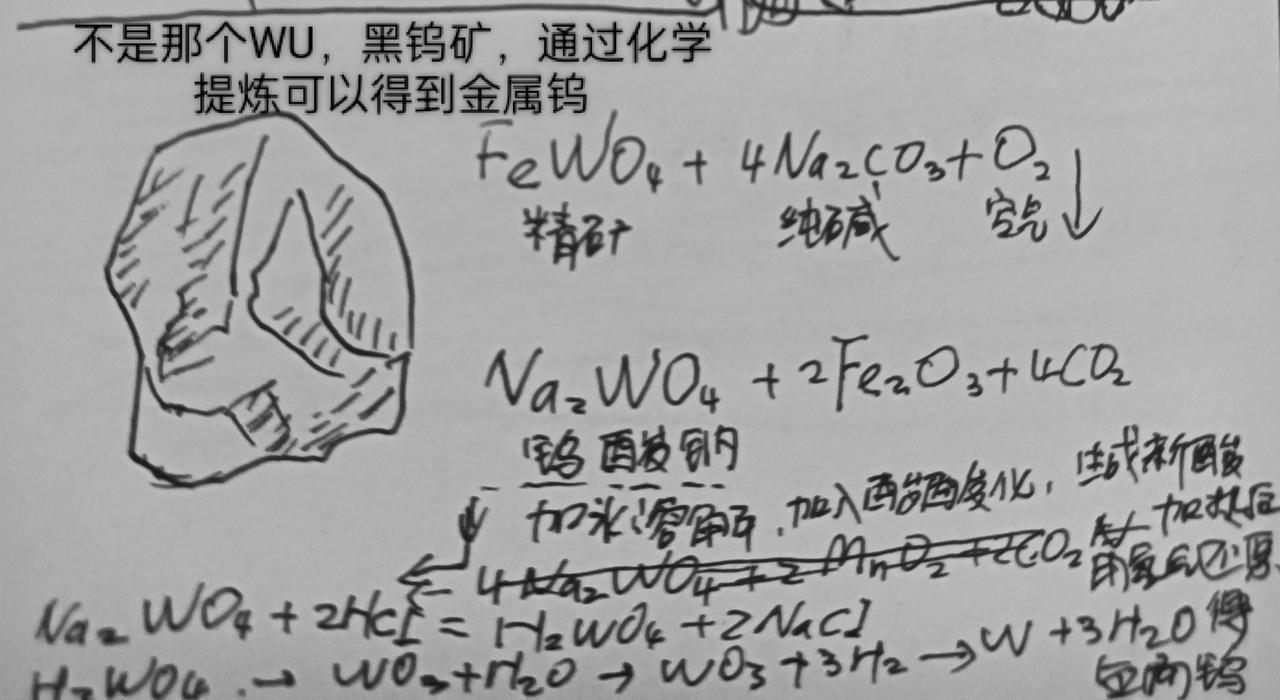 不是那个WU，黑钨矿，通过化学
提炼可以得到金属钨
FeWO₄ + 4Na₂CO₃ + O₂ ↓
精矿 纯碱 空气
Na₂WO₄ + 2Fe₂O₃ + 4CO₂
钨酸钠
加水溶解，加入酸酸化，生成新酸
加热后
用氢气还原
4Na₂WO₄ + 2MnO₂ + 2CO₂
Na₂WO₄ + 2HCl = H₂WO₄ + 2NaCl
得
H₂WO₄ → WO₃ + H₂O → WO₃ + 3H₂ → W + 3H₂O
钨